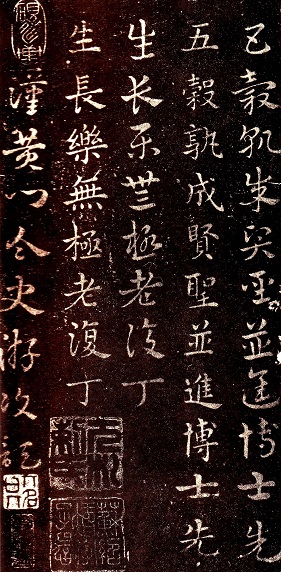 五穀孰成賢聖並進博士先
五穀孰成賢聖並進博士先
生长乐無極老復丁
生長樂無極老復丁
漢黄門令史游